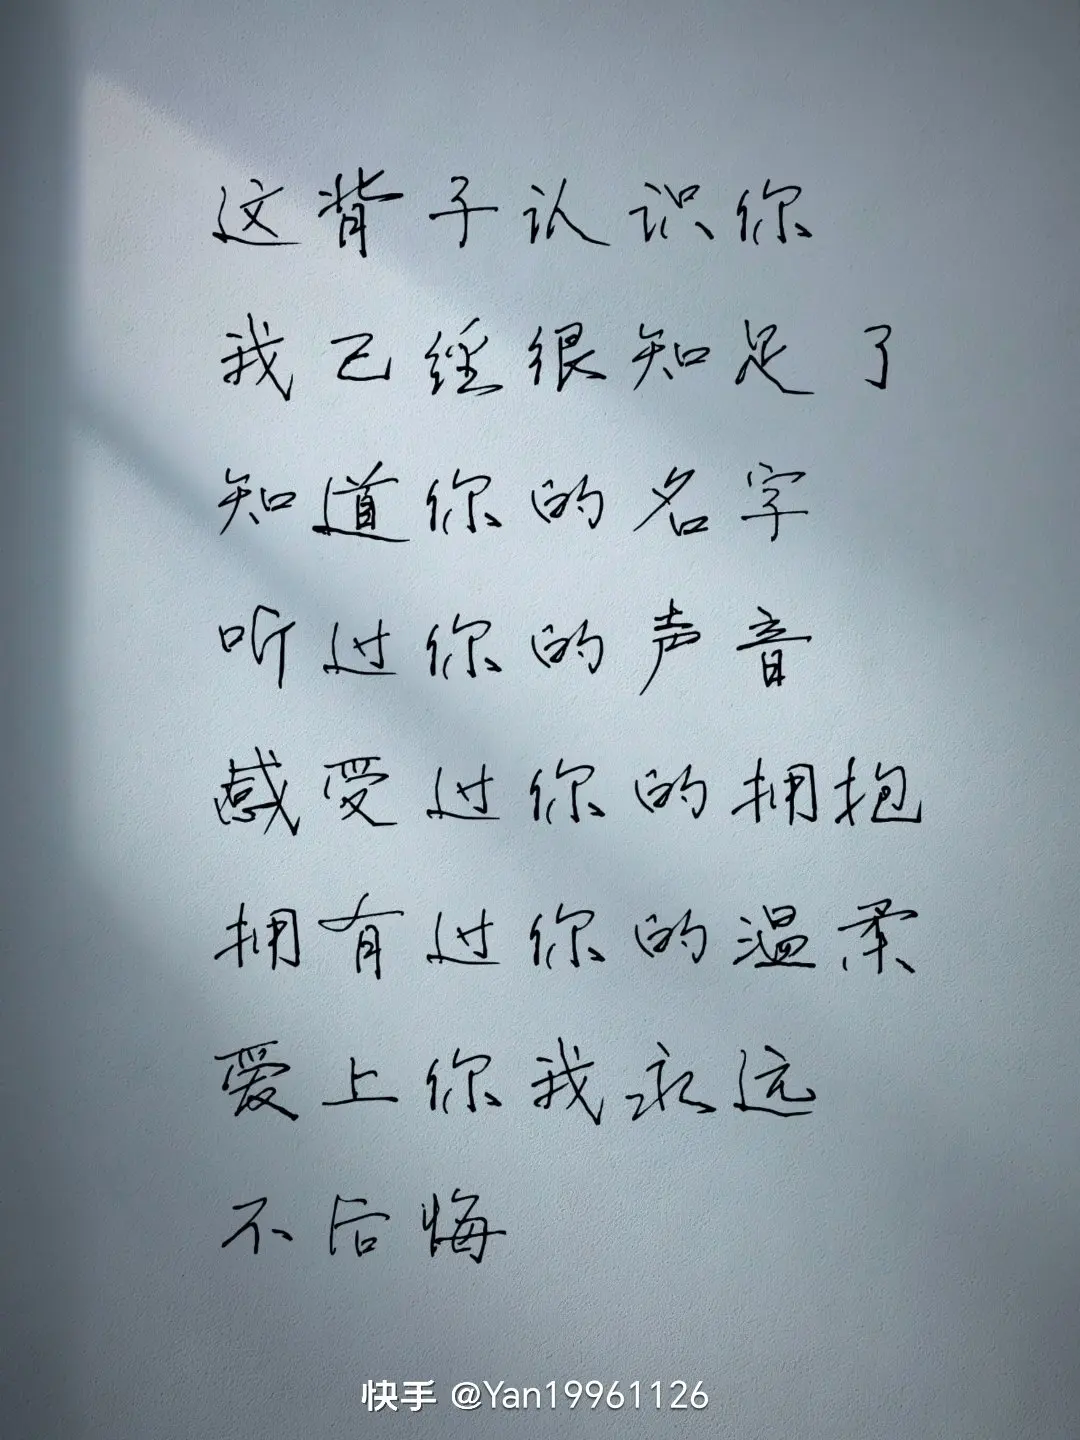 这背子认识你
我已经很知足了
知道你的名字
听过你的声音
感受过你的拥抱
拥有过你的温柔
爱上你我永远
不后悔
快手 @Yan19961126